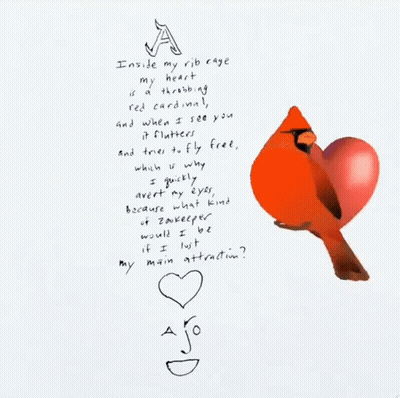 A
Inside my rib cage
my heart
is a throbbing
red cardinal,
and when I see you
it flutters
and tries to fly free,
which is why
I quickly
avert my eyes,
because what kind
of zookeeper
would I be
if I lost
my main attraction?
AJO